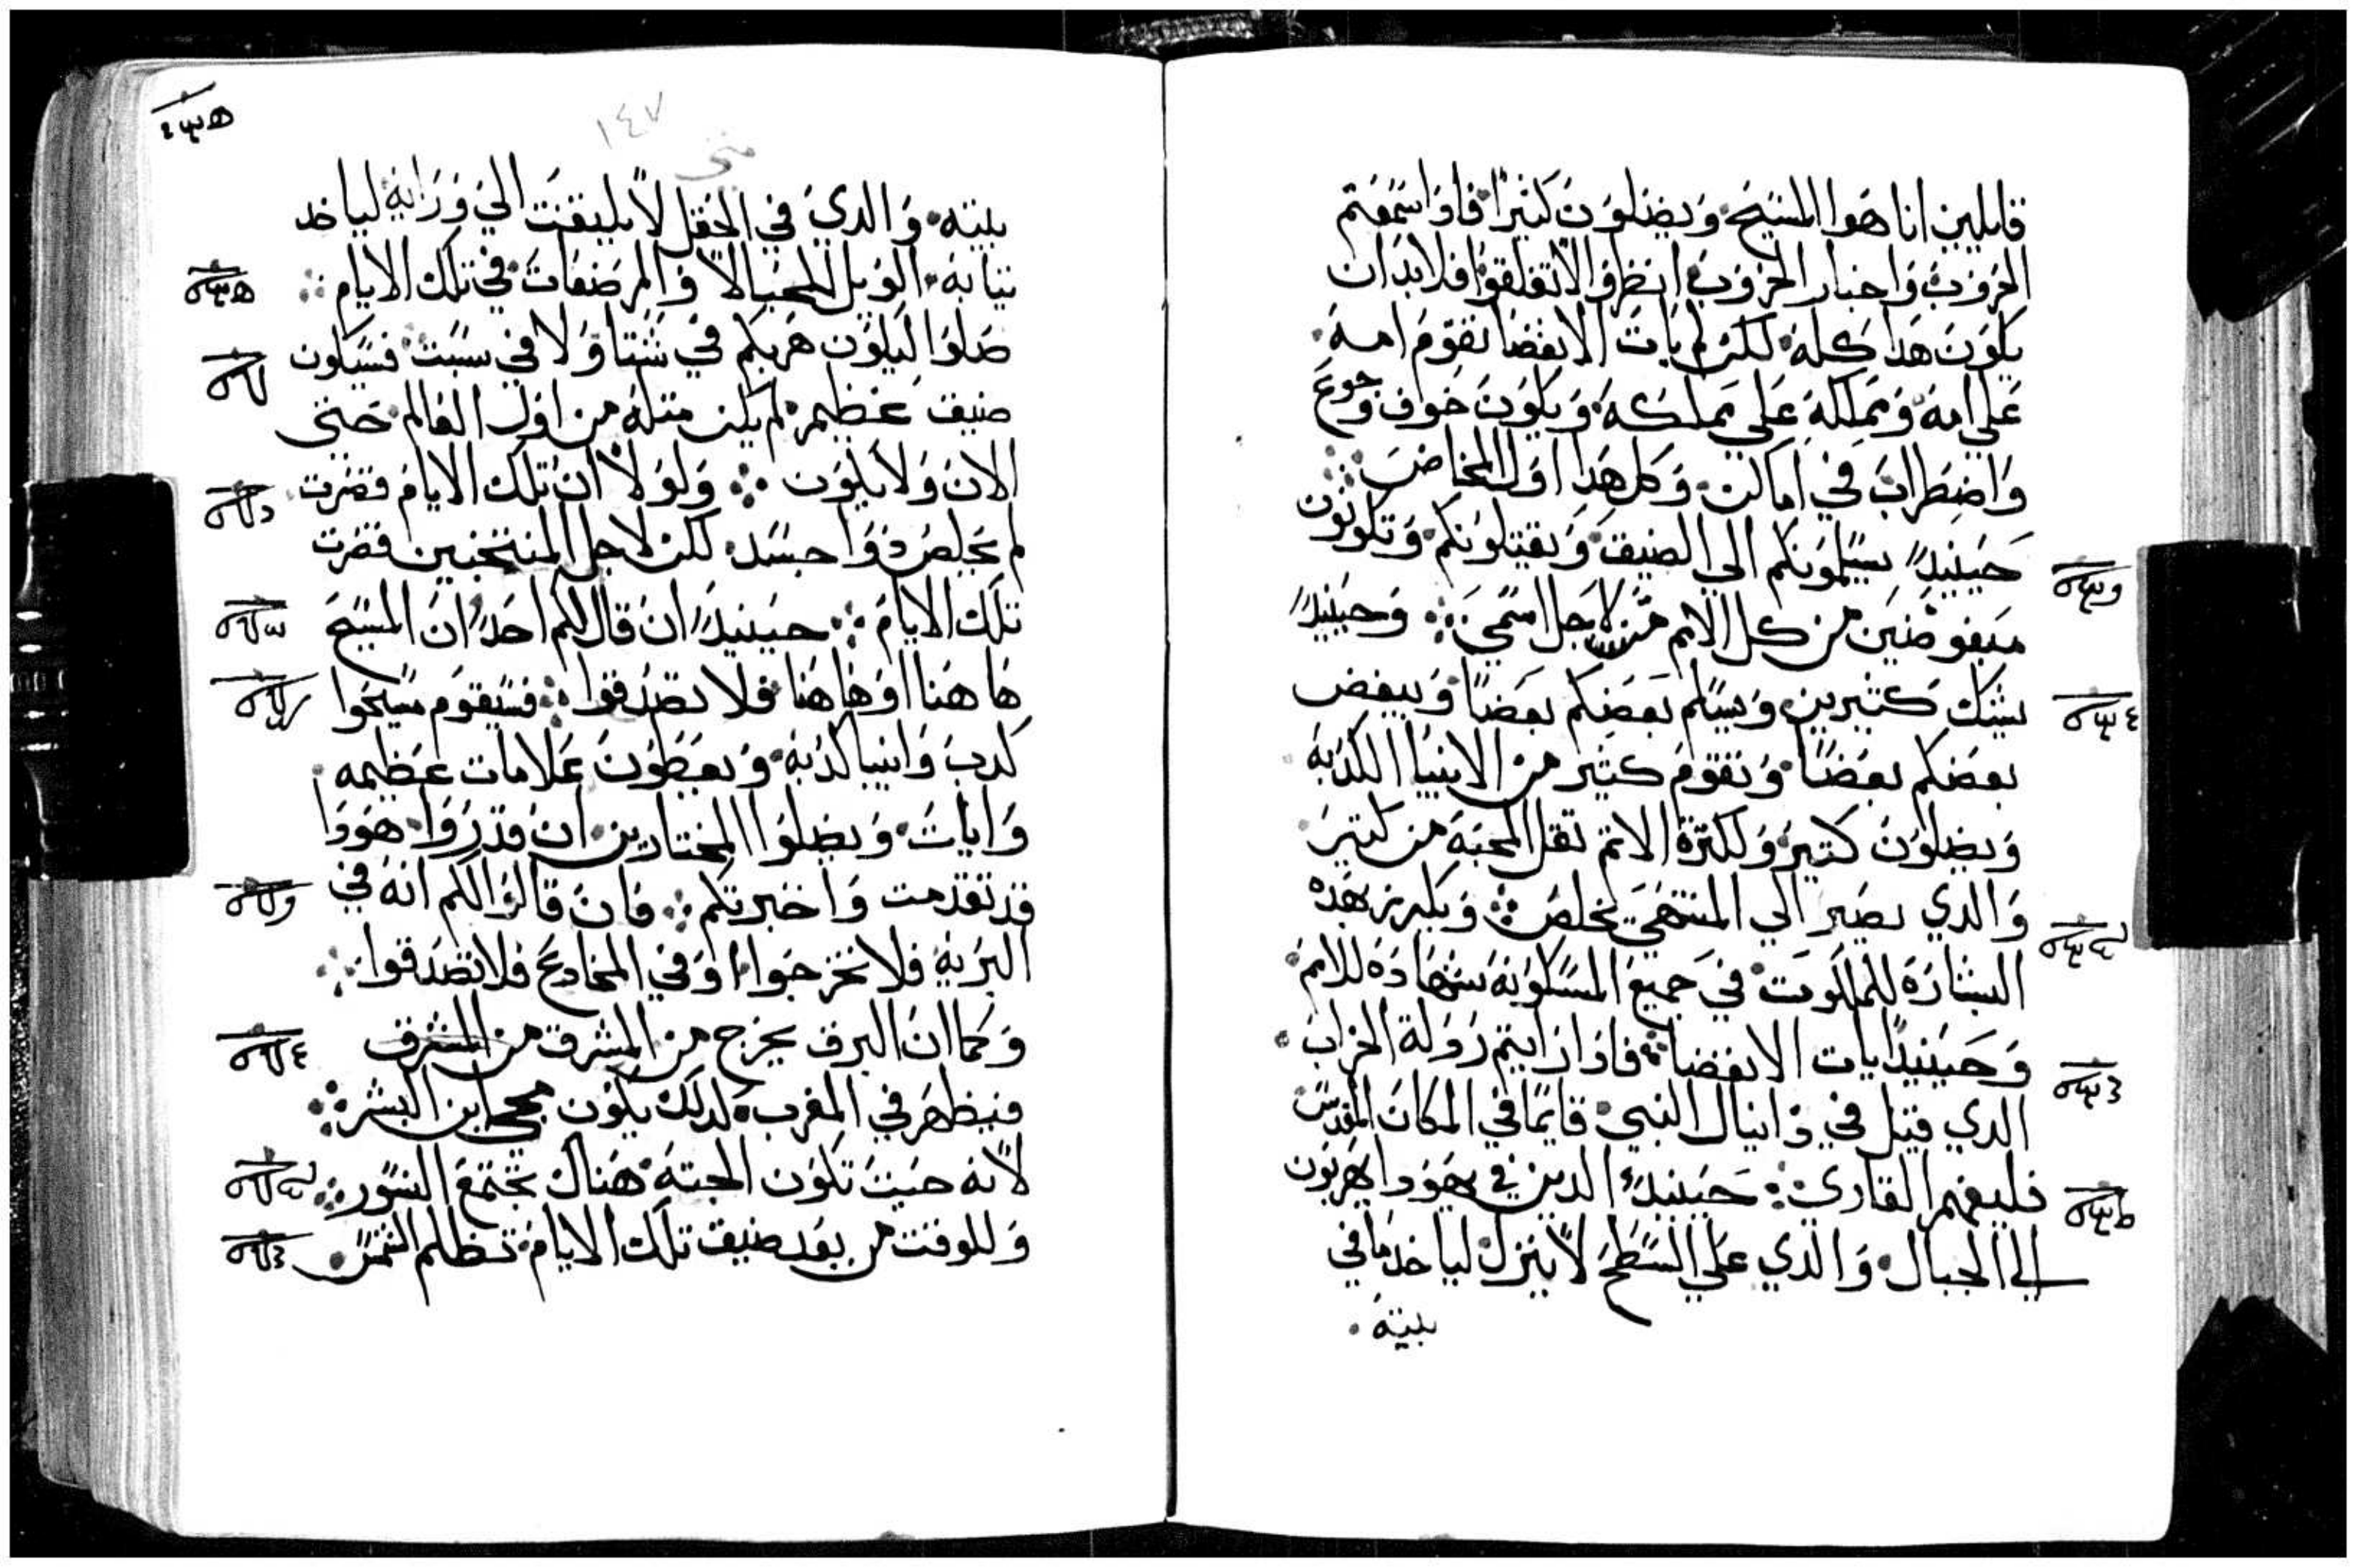 قايلين انا هوا المسيح. ويضلون كثيرًا فاذا سمعتم
الحروب واخبار الحروب انظروا لا تقلقوا فلابد ان
يكون هذا كله. لكن لم يات الانقضا تقوم امه.
علي امه ومملكة علي مملكه. ويكون خوف وجوع
واضطراب في اماكن. وكل هذا اول المخاض
حينيدٍ يسلمونكم الي الضيق ويقتلونكم. وتكونون
مبغوضين من كل الامم من لاجل اسمي وحينيدٍ
يشك كثيرين ويسلم بعضكم بعضًا ويبغض
بعضكم بعضًا. وتقوم كثير من الانبيا الكذبه
ويضلون كتير. ولكثرة الاتم تقل المحبه من كتير
والدي يصير الي المنتهي يخلص ويكرز بهذه
البشارة للملكوت في جميع المسكونه شهادة للامم
وحينيدًا يات الانقضا. فاذا رايتم رذولة الخراب
الدي قيل في دانيال النبي قايمًا في المكان المقدس
فليفهم القاري حينيدٍ الدين في يهودا يهربون
الي الجبال. والذي علي السطح لا ينزل لياخد ما في
بيته.
١٤٧
متى
بيته. والدي في الحقل لا يليفت الي ورايه لياخد
تيابه. الويل للحبالا والمرضعات في تلك الايام
صلوا ليلون هربكم في شتا ولا في سبت فسيكون
ضيق عظيم. لم يكن متله من اول العالم حتى
الان ولا يكون ولولا ان تلك الايام قصرت
لم يخلص ذوا جسد. لكن لاجل المنتخبين قصرت
تلك الايام حينيدٍ ان قال لكم احدٍ ان المسيح
ها هنا او ها هنا فلا تصدقوا فسيقوم مسيحوا
كدب وانبيا كدبه ويعطون علامات عظيمه
وايات. ويضلوا المختارين ان قدروا. هودا
قد تقدمت واخبرتكم فان قالوا لكم انه في
البريه فلا تخرجوا او في المخادع فلا تصدقوا
وكما ان البرق يخرج من المشرق من المشرق
فيظهر في المغرب. لدلك يكون مجي ابن البشر
لانه حيت تكون الجته هناك تجتمع النسور
وللوقت من بعد ضيق تلك الايام. تظلم الشمس.